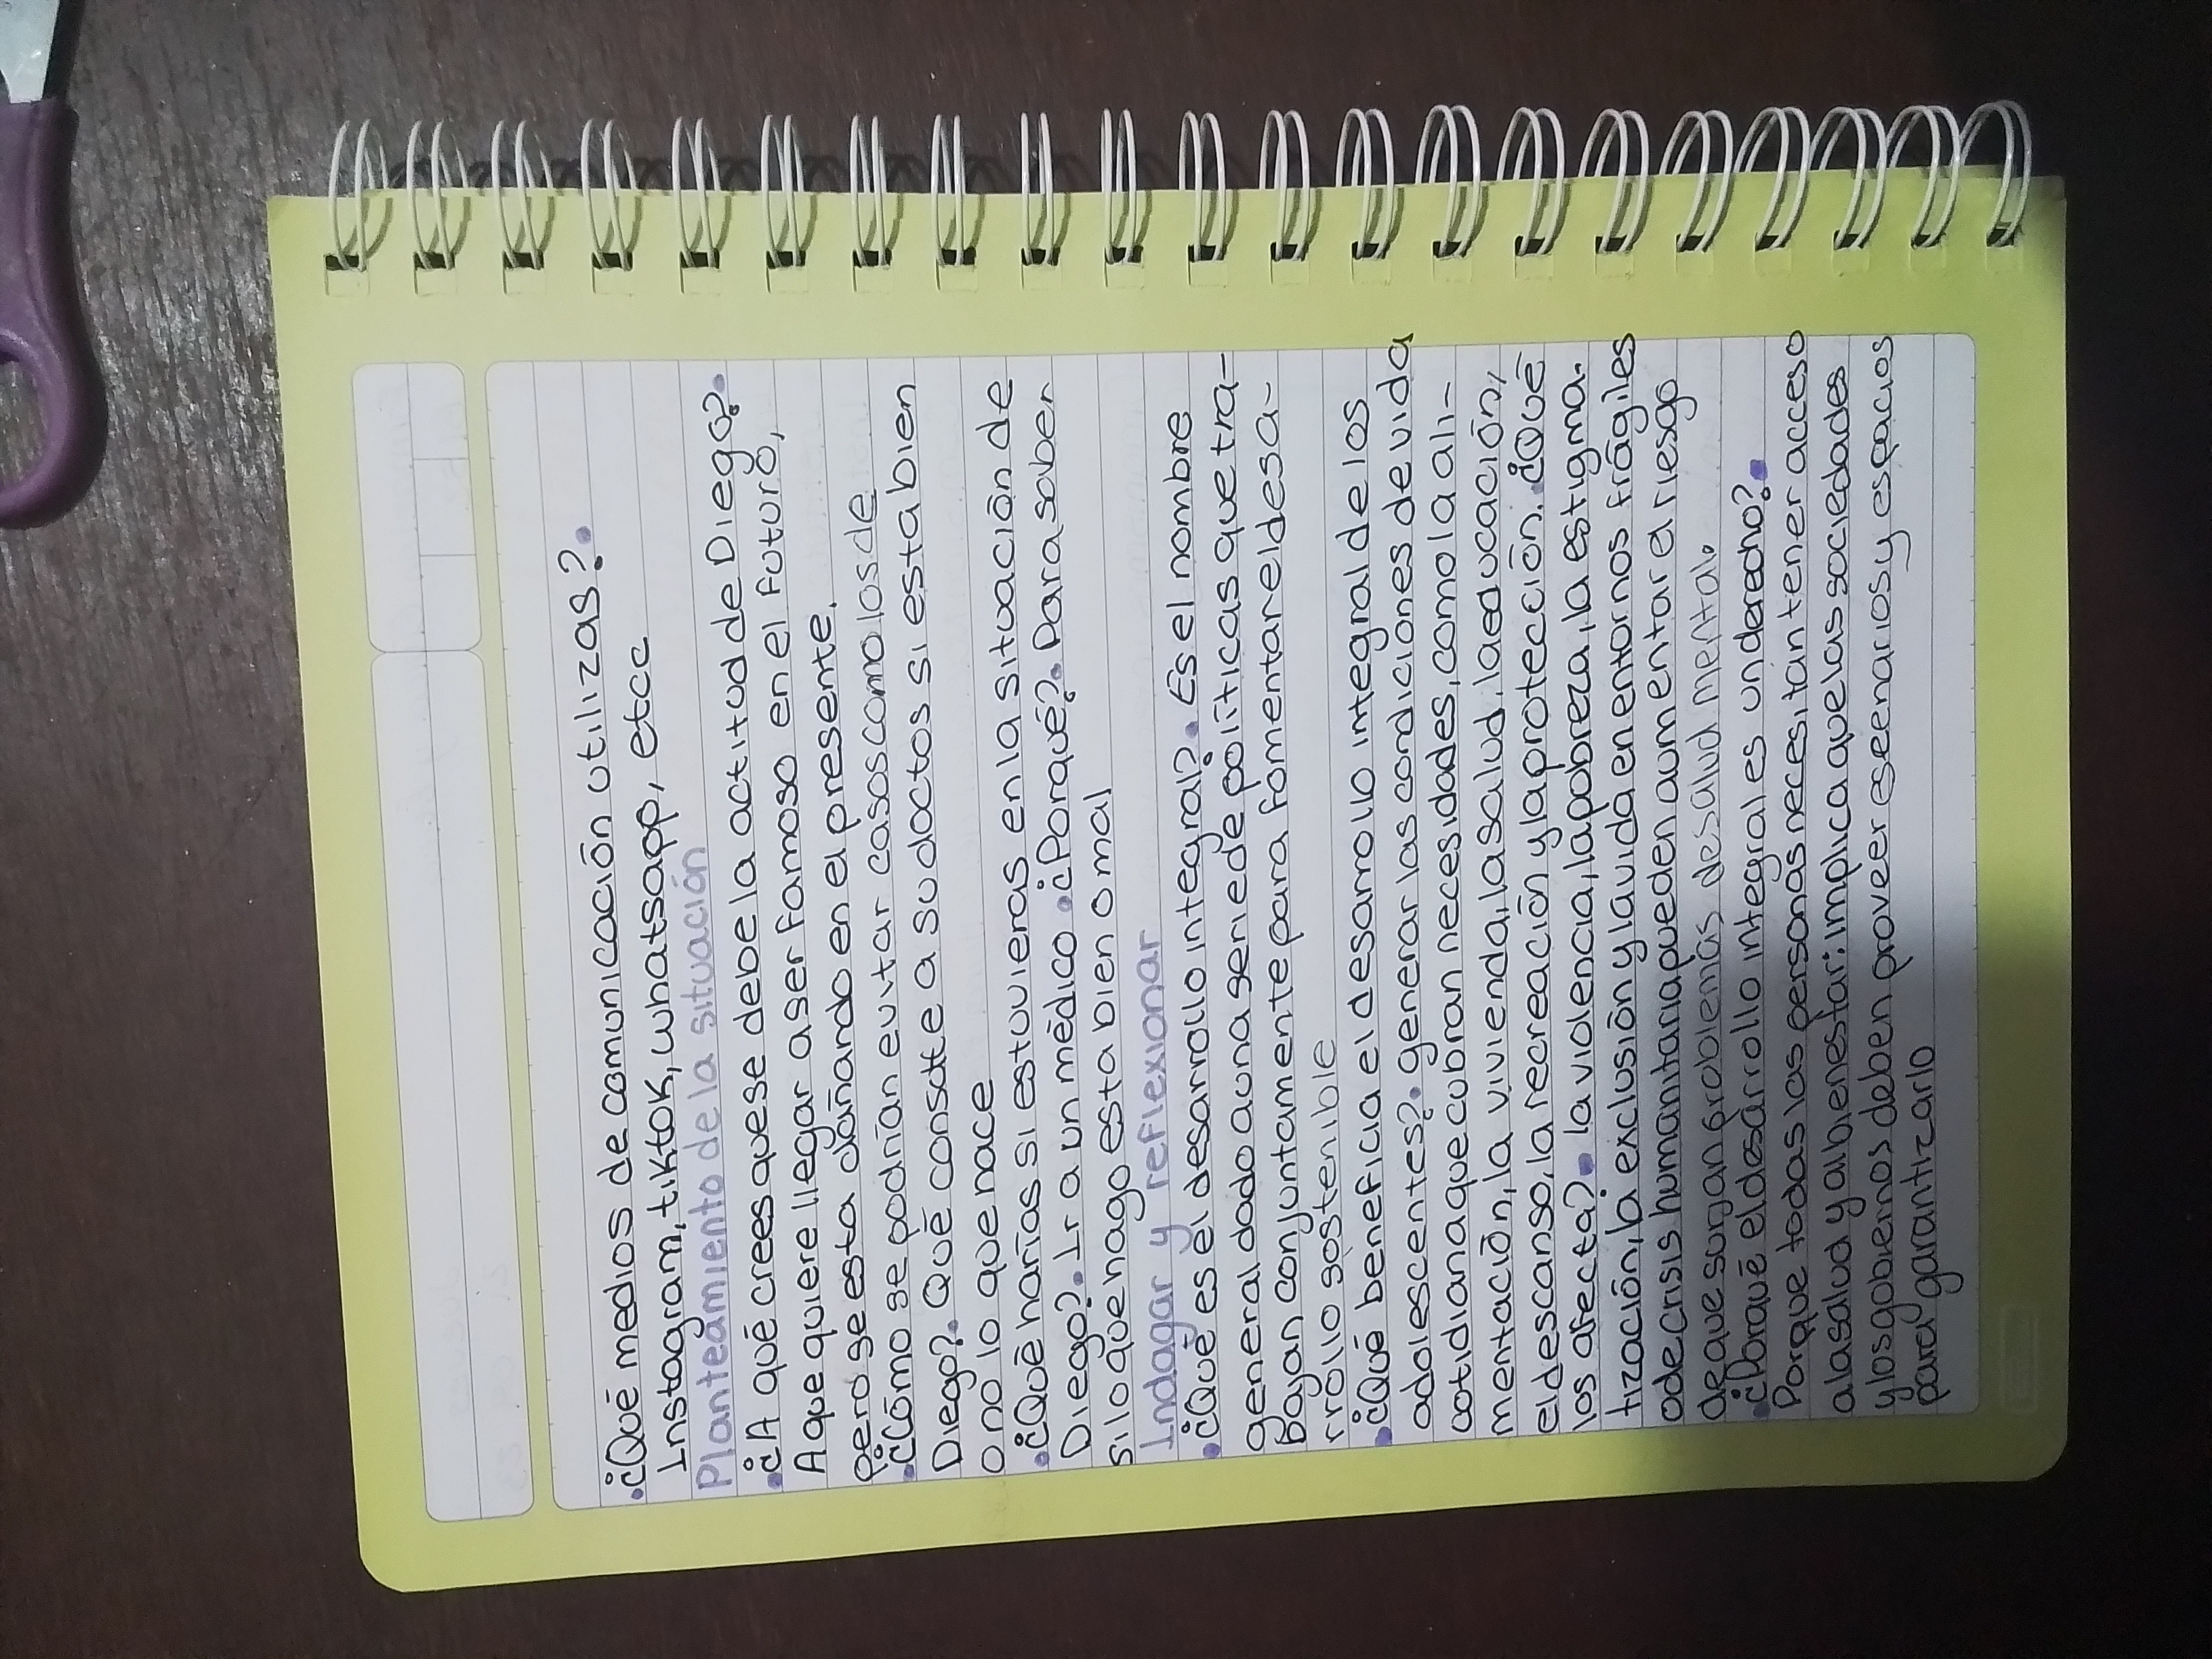 •¿Qué medios de comunicación utilizas?.
Instagram, tiktok, whatsapp, etcc
Planteamiento de la situación
•¿A qué crees que se debe la actitud de Diego?.
A que quiere llegar a ser famoso en el futuro,
pero se esta dañando en el presente.
•¿Cómo se podrían evutar casos como los de
Diego?. Qué consdte a su doctos si esta bien
o no lo que hace
•¿Qué harías si estuvieras en la situación de
Diego?. Ir a un médico. ¿Por qué?. Para saber
si lo que hago esta bien o mal
Indagar y reflexionar
•¿Qué es el desarrollo integral?. Es el nombre
general dado a una serie de políticas que tra-
bajan conjuntamente para fomentar el desa-
rrollo sostenible
•¿Qué beneficia el desarrollo integral de los
adolescentes?. generar las condiciones de vida
cotidiana que cubran necesidades, como la ali-
mentación, la vivienda, la salud, la educación,
el descanso, la recreación y la protección. ¿Qué
los afecta?. la violencia, la pobreza, la estigma.
tización, la exclusión y la vida en entornos frágiles
o de crisis humanitaria pueden aumentar el riesgo
de que surgan problemas de salud mental.
•¿Porqué el desarrollo integral es un derecho?.
Porque todas las personas necesitan tener acceso
a la salud y al bienestar: implica que las sociedades
y los gobiernos deben proveer esenarios y espacios
para garantizarlo